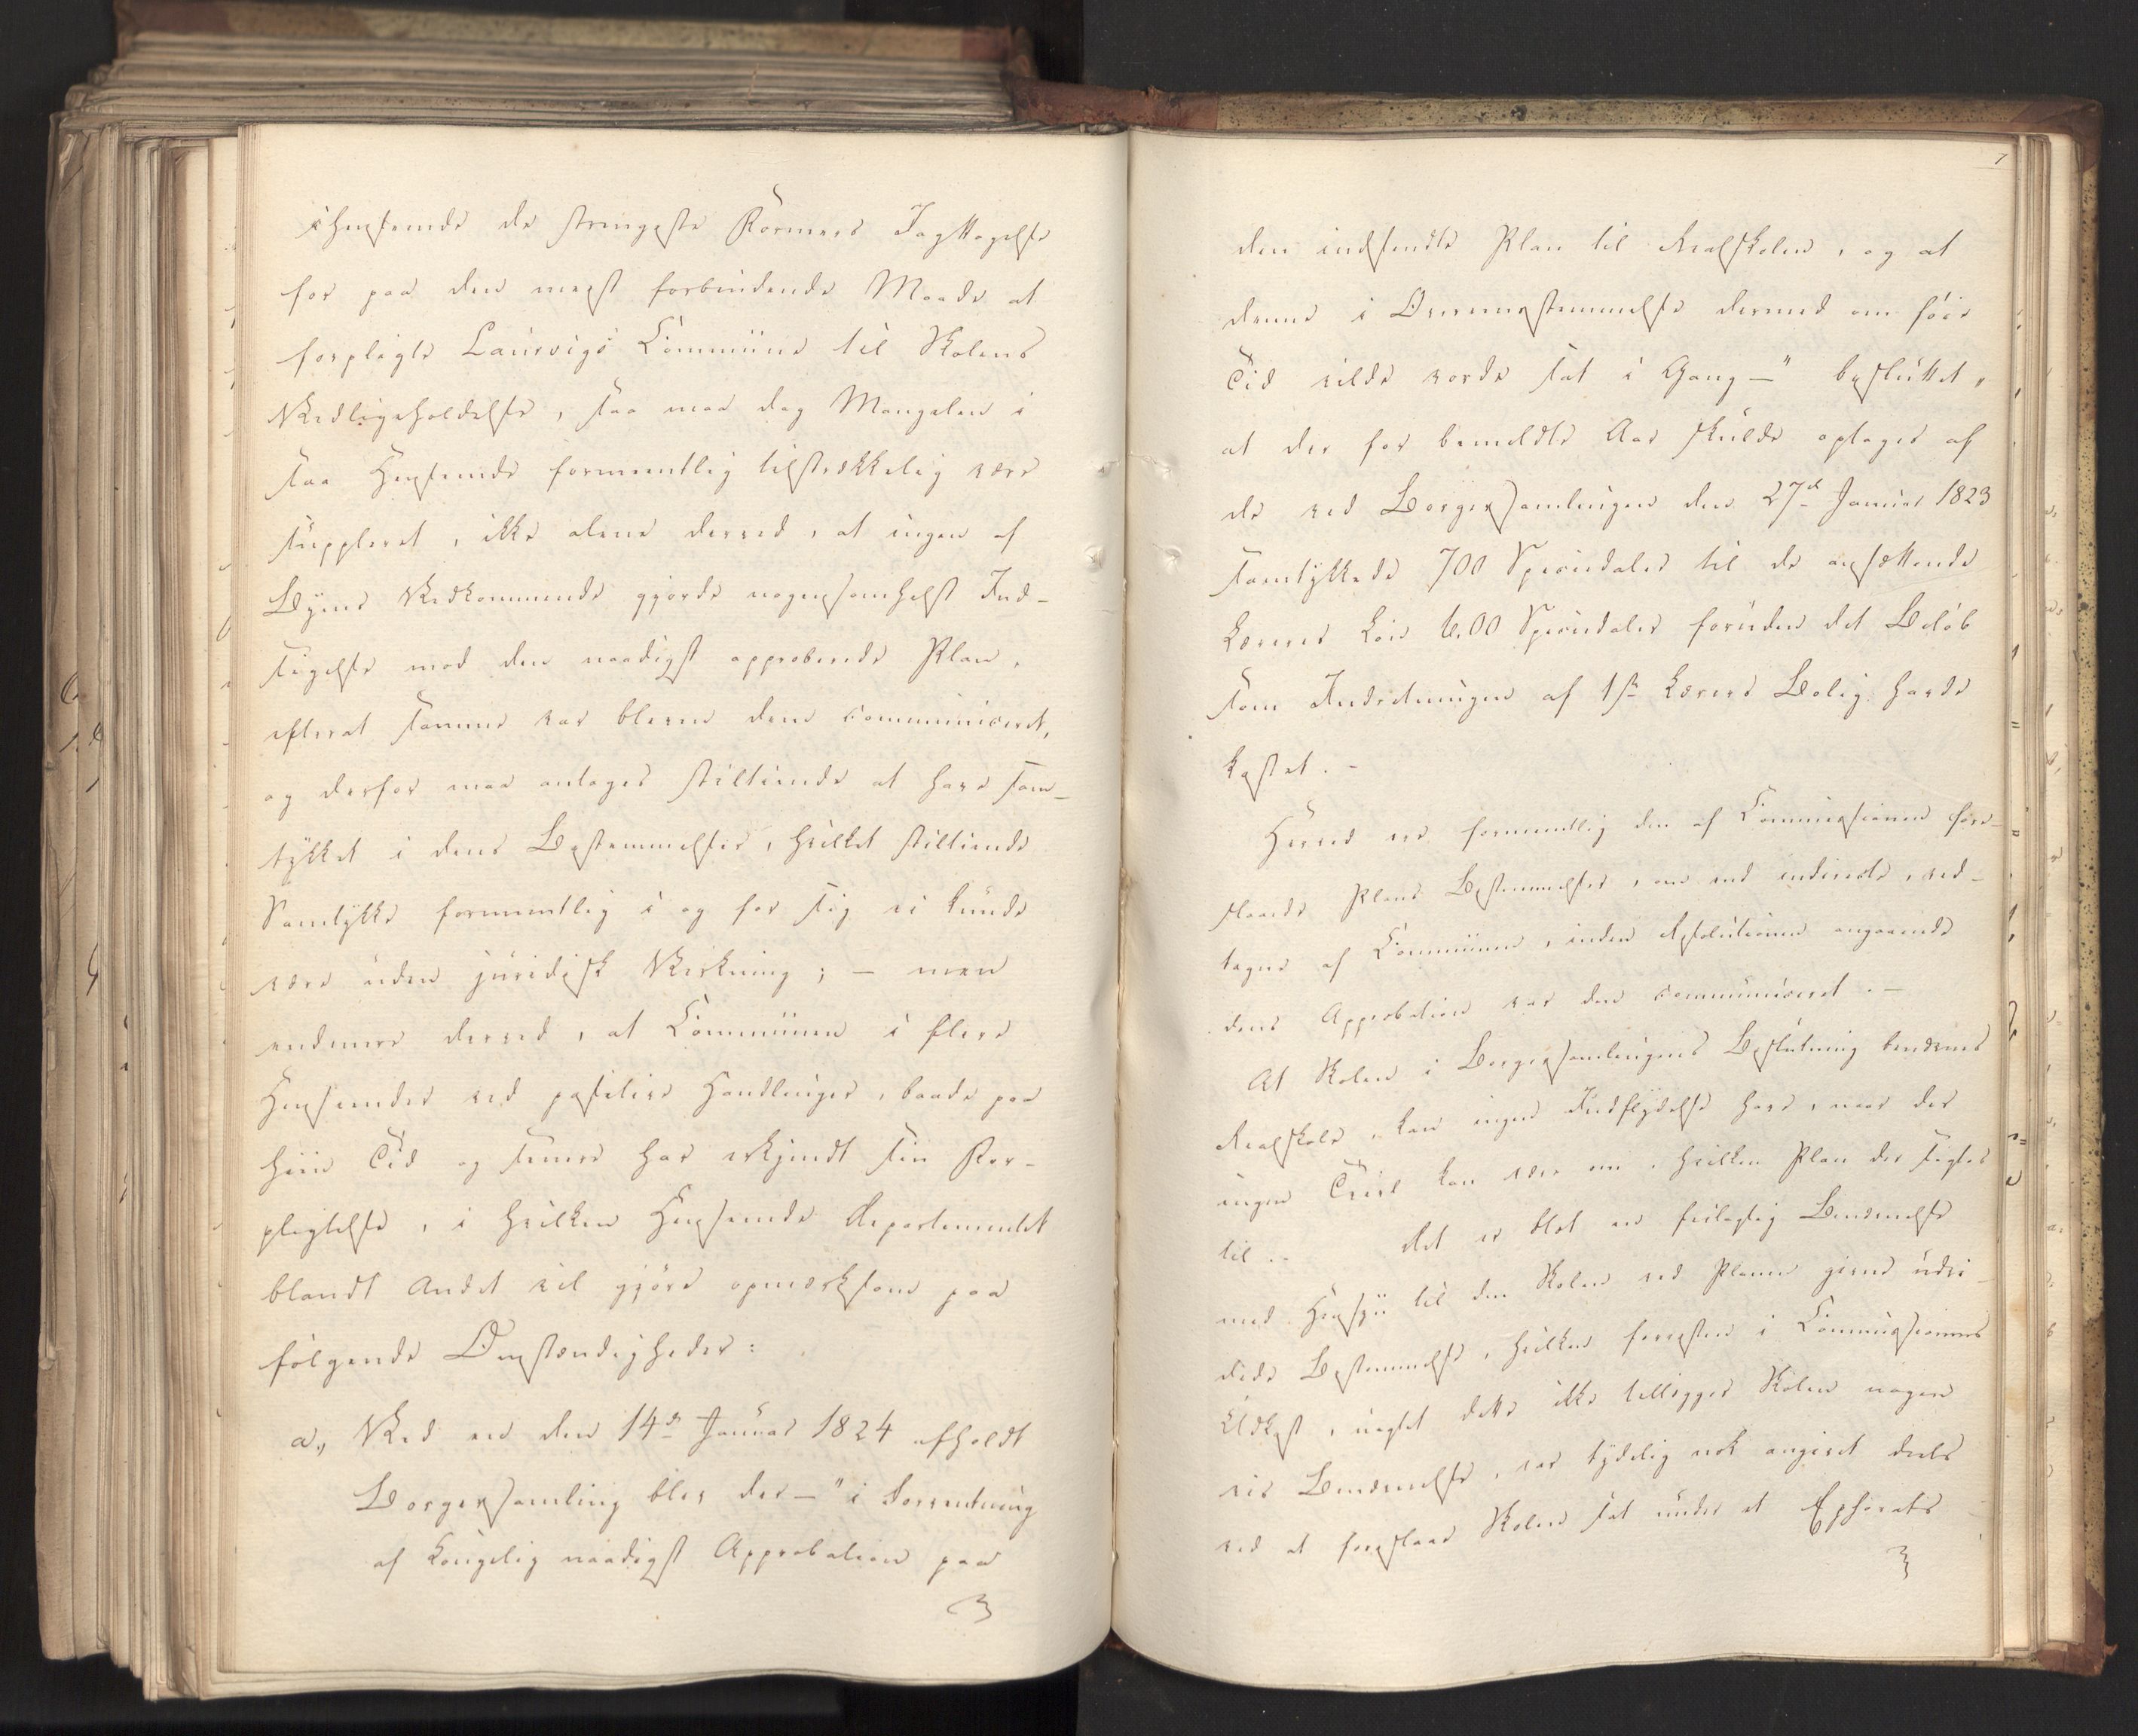 ihenseende de strengeste Formers Iagttagelse
for paa den meest forbindende Maade at
forpligte Laurvigs Commune til Skolens
Vedligeholdelse, saa maa dog Mangelen i
saa Henseende formeentlig tilstrækkelig være
suppleret, ikke alene derved, at ingen af
Byens Vedkommende gjorde nogensomhelst Ind-
sigelse mod den naadigst approberede Plan,
efterat samme var bleven dem communiceret,
og derfor maa antages stiltiende at have sam-
tykket i dens Bestemmelser, hvilket stiltiende
Samtykke formeentlig i og for sig ei kunde
være uden juridisk Virkning; – men
endmere derved, at Communen i flere
Henseender ved positive Handlinger, baade paa
hiin Tid og senere har erkjendt sin For-
pligtelse, i hvilken Henseende Departementet
blandt Andet vil gjøre opmærksom paa
følgende Omstændigheder:
a., Ved en den 14de Januar 1824 afholdt
Borgersamling blev der – "i Forventning
af Kongelig naadigst Approbation paa
7
den indsendte Plan til Realskolen, og at
denne i Overeensstemmelse dermed om føie
Tid vilde vorde sat i Gang –" besluttet,
at der for bemeldte Aar skulde optages af
de ved Borgersamlingen den 27de Januar 1823
samtykkede 700 Speciedaler til de ansættende
Læreres Løn 600 Speciedaler foruden det Beløb
som Indretningen af 1ste Lærers Bolig havde
kostet. –
Herved er formeentlig den af Commissionen fore-
slaaede Plans Bestemmelser, om end indirecte, ved-
tagne af Communen, inden Resolutionen angaaende
dens Approbation var den communiceret. –
At Skolen i Borgersamlingens Beslutning benævnes
Realskole, kan ingen Indflydelse have, naar der
ingen Tvivl kan være om, hvilken Plan der sigtes
til. – Det er blot en feilagtig Benævnelse
med Hensyn til den Skolen ved Planen givne udvi-
dede Bestemmelse, hvilken forresten i Commissionens
Udkast, uagtet dette ikke tillægger Skolen nogen
vis Benævnelse, var tydelig nok angivet deels
ved at foreslaae Skolen sat under et Ephorats